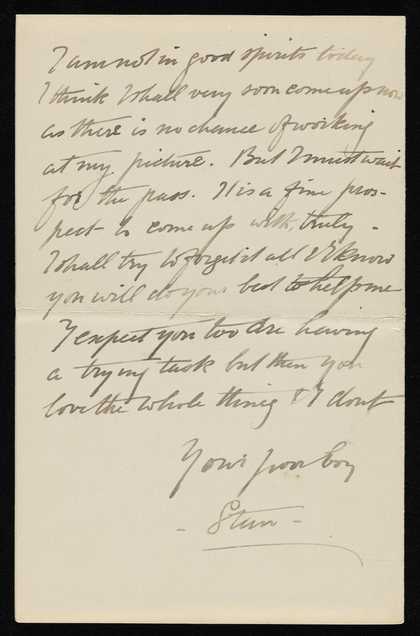 I am not in good spirits today
I think I shall very soon come up now
as there is no chance of working
at my picture. But I must wait
for the pass. It is a fine pros-
pect to come up with, truly -
I shall try to forget it all & I know
you will do your best to help me
I expect you too are having
a trying task but then you
love the whole thing & I dont
Your poor boy
- Stew -